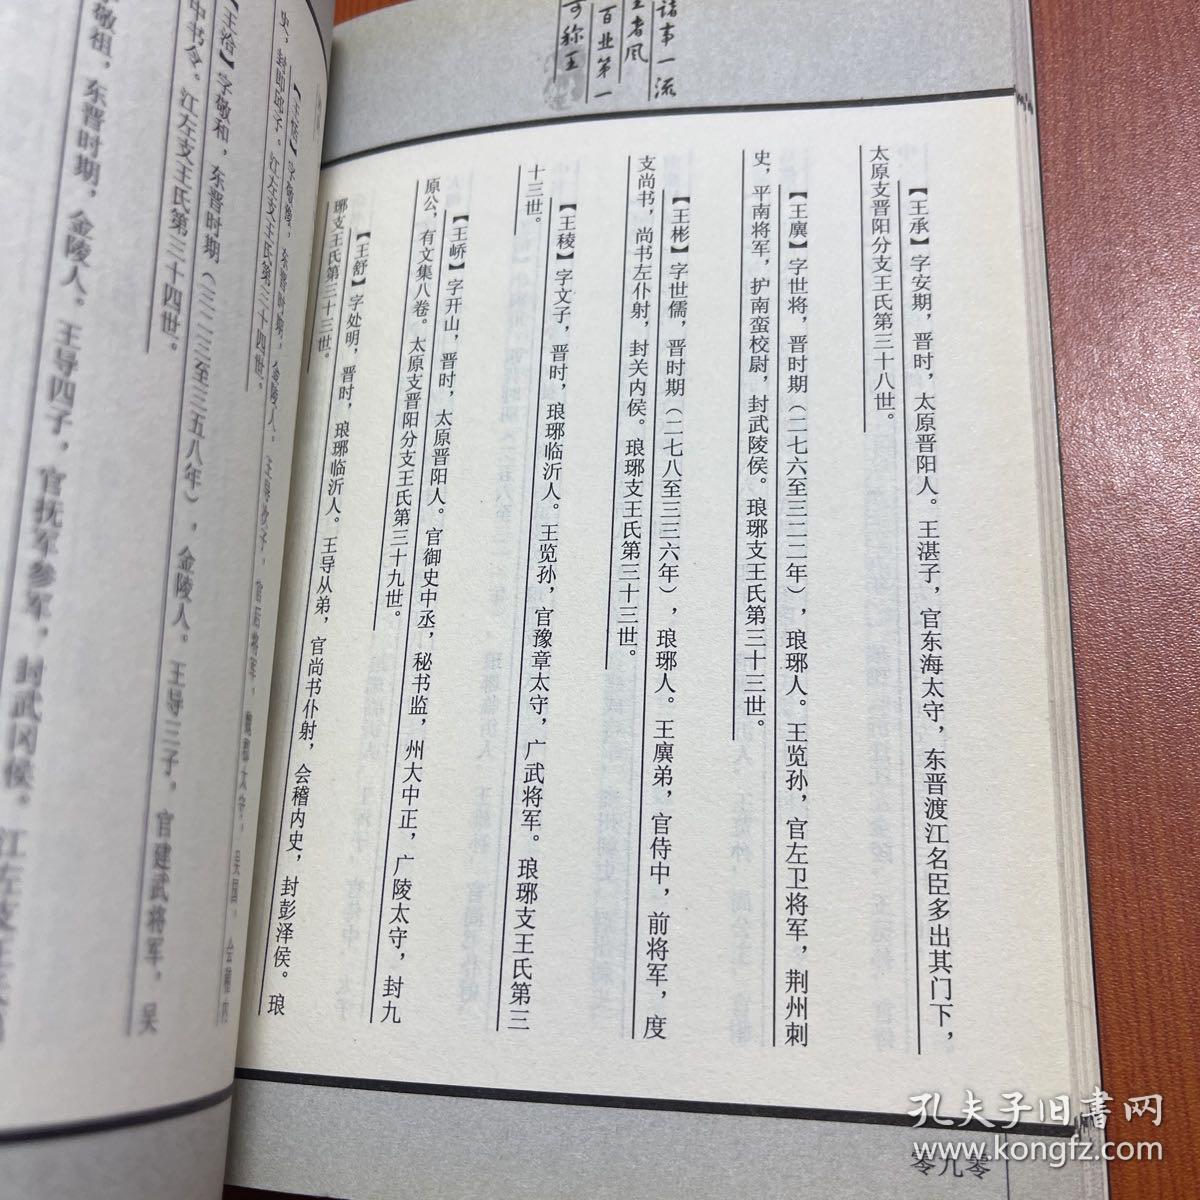 诸事一流
王者风
百业第一
可称王
【王承】字安期，晋时，太原晋阳人。王湛子，官东海太守，东晋渡江名臣多出其门下，
太原支晋阳分支王氏第三十八世。
【王廙】字世将，晋时期（二七六至三二二年），琅琊人。王览孙，官左卫将军，荆州刺
史，平南将军，护南蛮校尉，封武陵侯。琅琊支王氏第三十三世。
【王彬】字世儒，晋时期（二七八至三三六年），琅琊人。王廙弟，官侍中，前将军，度
支尚书，尚书左仆射，封关内侯。琅琊支王氏第三十三世。
【王稜】字文子，晋时，琅琊临沂人。王览孙，官豫章太守，广武将军。琅琊支王氏第三
十三世。
【王峤】字开山，晋时，太原晋阳人。官御史中丞，秘书监，州大中正，广陵太守，封九
原公，有文集八卷。太原支晋阳分支王氏第三十九世。
【王舒】字处明，晋时，琅琊临沂人。王导从弟，官尚书仆射，会稽内史，封彭泽侯。琅
琊支王氏第三十三世。
零九零
东晋时期，金陵人。王导次子，官后将军，魏郡太守，吴国，会稽内
史，封即丘子。江左支王氏第三十四世。
【王洽】字敬和，东晋时期（三二三至三五八年），金陵人。王导三子，官建武将军，吴
中书令。江左支王氏第三十四世。
敬祖，东晋时期，金陵人。王导四子，官抚军参军，封武冈侯。江左支王氏第
孔夫子旧书网
www.kongfz.com